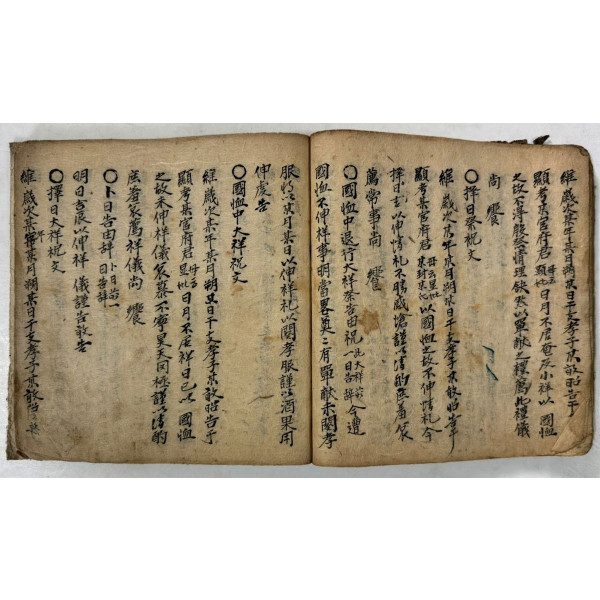 維歲次某年某月朔某日干支孝子某敢昭告于
顯考某官府君 母云顯妣 日月不居奄及小祥以 國恤
之故不得殷祭情理缺然以單獻之禮薦此禮儀
尚 饗
○擇日祭祝文
維歲次某年某月朔某日干支孝子某敢昭告于
顯考某官府君 母云某封某氏 以國恤之故不伸情札今
擇日吉以伸情札不勝感愴謹以清酌庶羞哀
薦常事尚 饗
○國恤中退行大祥祭告由祝 此大祥前一日告辭 今遭
國恤不伸祥事明當畧奠之有單獻未闋孝
服將以某月某日以伸祥札以闋孝服謹以酒果用
伸虔告
○國恤中大祥祝文
維歲次某年某月朔某日干支孝子某敢昭告于
顯考某官府君 母云顯妣 日月不居祥日已以 國恤
之故未伸祥儀哀慕不寧昊天罔極謹以清酌
庶羞哀薦祥儀尚 饗
○卜日告由辞 卜日前一日告辞
明日吉辰以伸祥 儀謹告敢告
○擇日大祥祝文
維 歲次某年某月朔某日干支孝子某敢昭